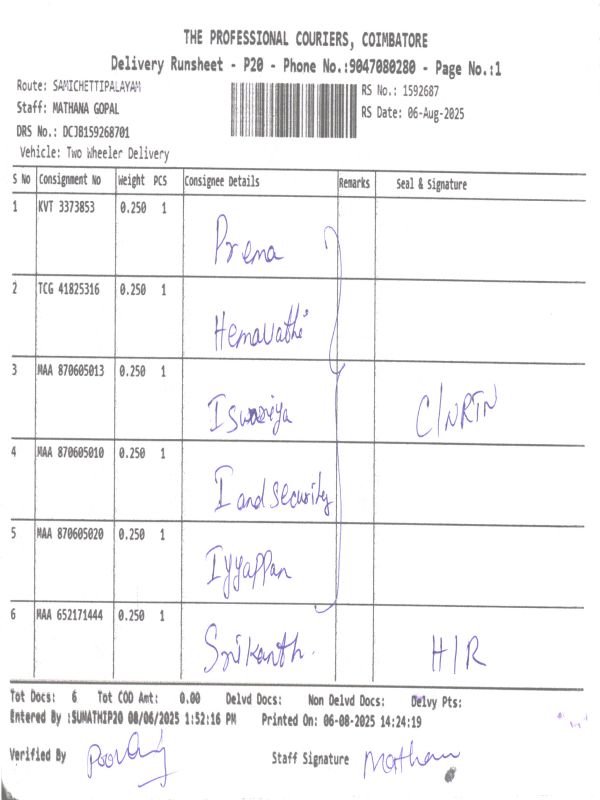 THE PROFESSIONAL COURIERS, COIMBATORE
Delivery Runsheet - P20 - Phone No.:9047080280 - Page No.:1
Route: SAMICHETTIPALAYAM
RS No.: 1592687
Staff: MATHANA GOPAL
RS Date: 06-Aug-2025
DRS No.: DCJB159268701
Vehicle: Two Wheeler Delivery
S No Consignment No Weight PCS Consignee Details Remarks Seal & Signature
1 KVT 3373853 0.250 1 Prema
2 TCG 41825316 0.250 1 Hemavathi
3 MAA 870605013 0.250 1 Iswariya C/NRTN
4 MAA 870605010 0.250 1 I and security
5 MAA 870605020 0.250 1 Iyyappan
6 MAA 652171444 0.250 1 Srikanth. H/R
Tot Docs: 6 Tot COD Amt: 0.00 Delvd Docs: Non Delvd Docs: Delvy Pts:
Entered By :SUMATHIP20 08/06/2025 1:52:16 PM Printed On: 06-08-2025 14:24:19
Verified By Staff Signature Mathan